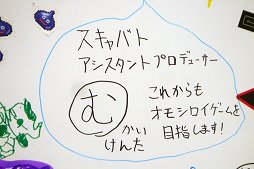 スキャバト
アシスタントプロデューサー
む
かい
けんた
これからも
オモシロイゲームを
目指します!